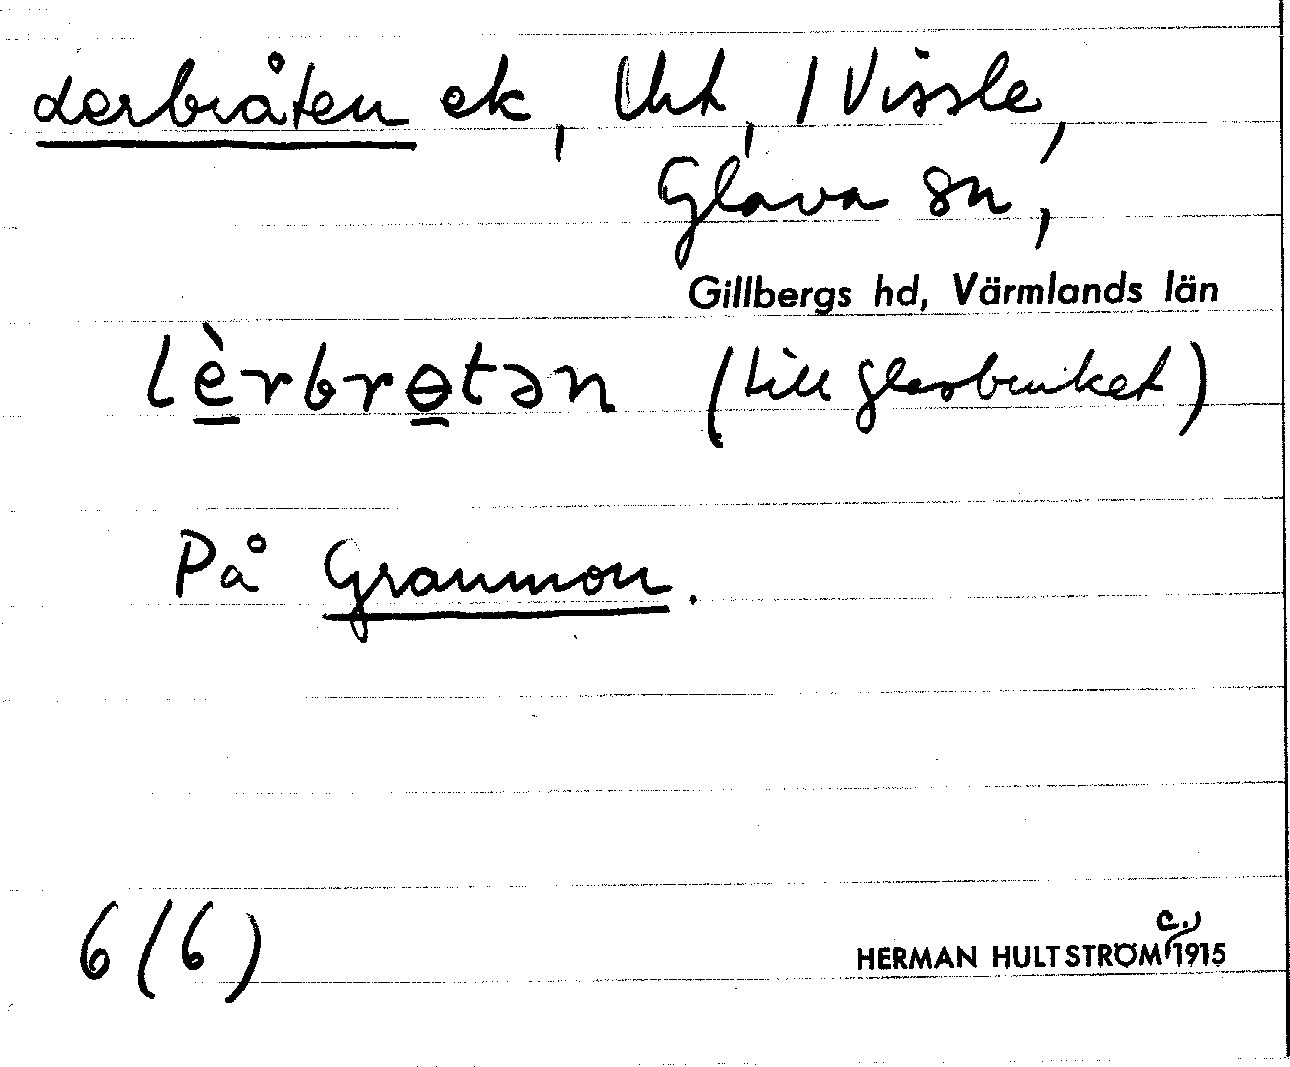 Lerbråten ek, 1 Vissle,
Glava sn,
Gillbergs hd, Värmlands län
lèrbrɵtən (till glasbruket)
På Granmon.
6 (6)
HERMAN HULTSTRÖM c. 1915